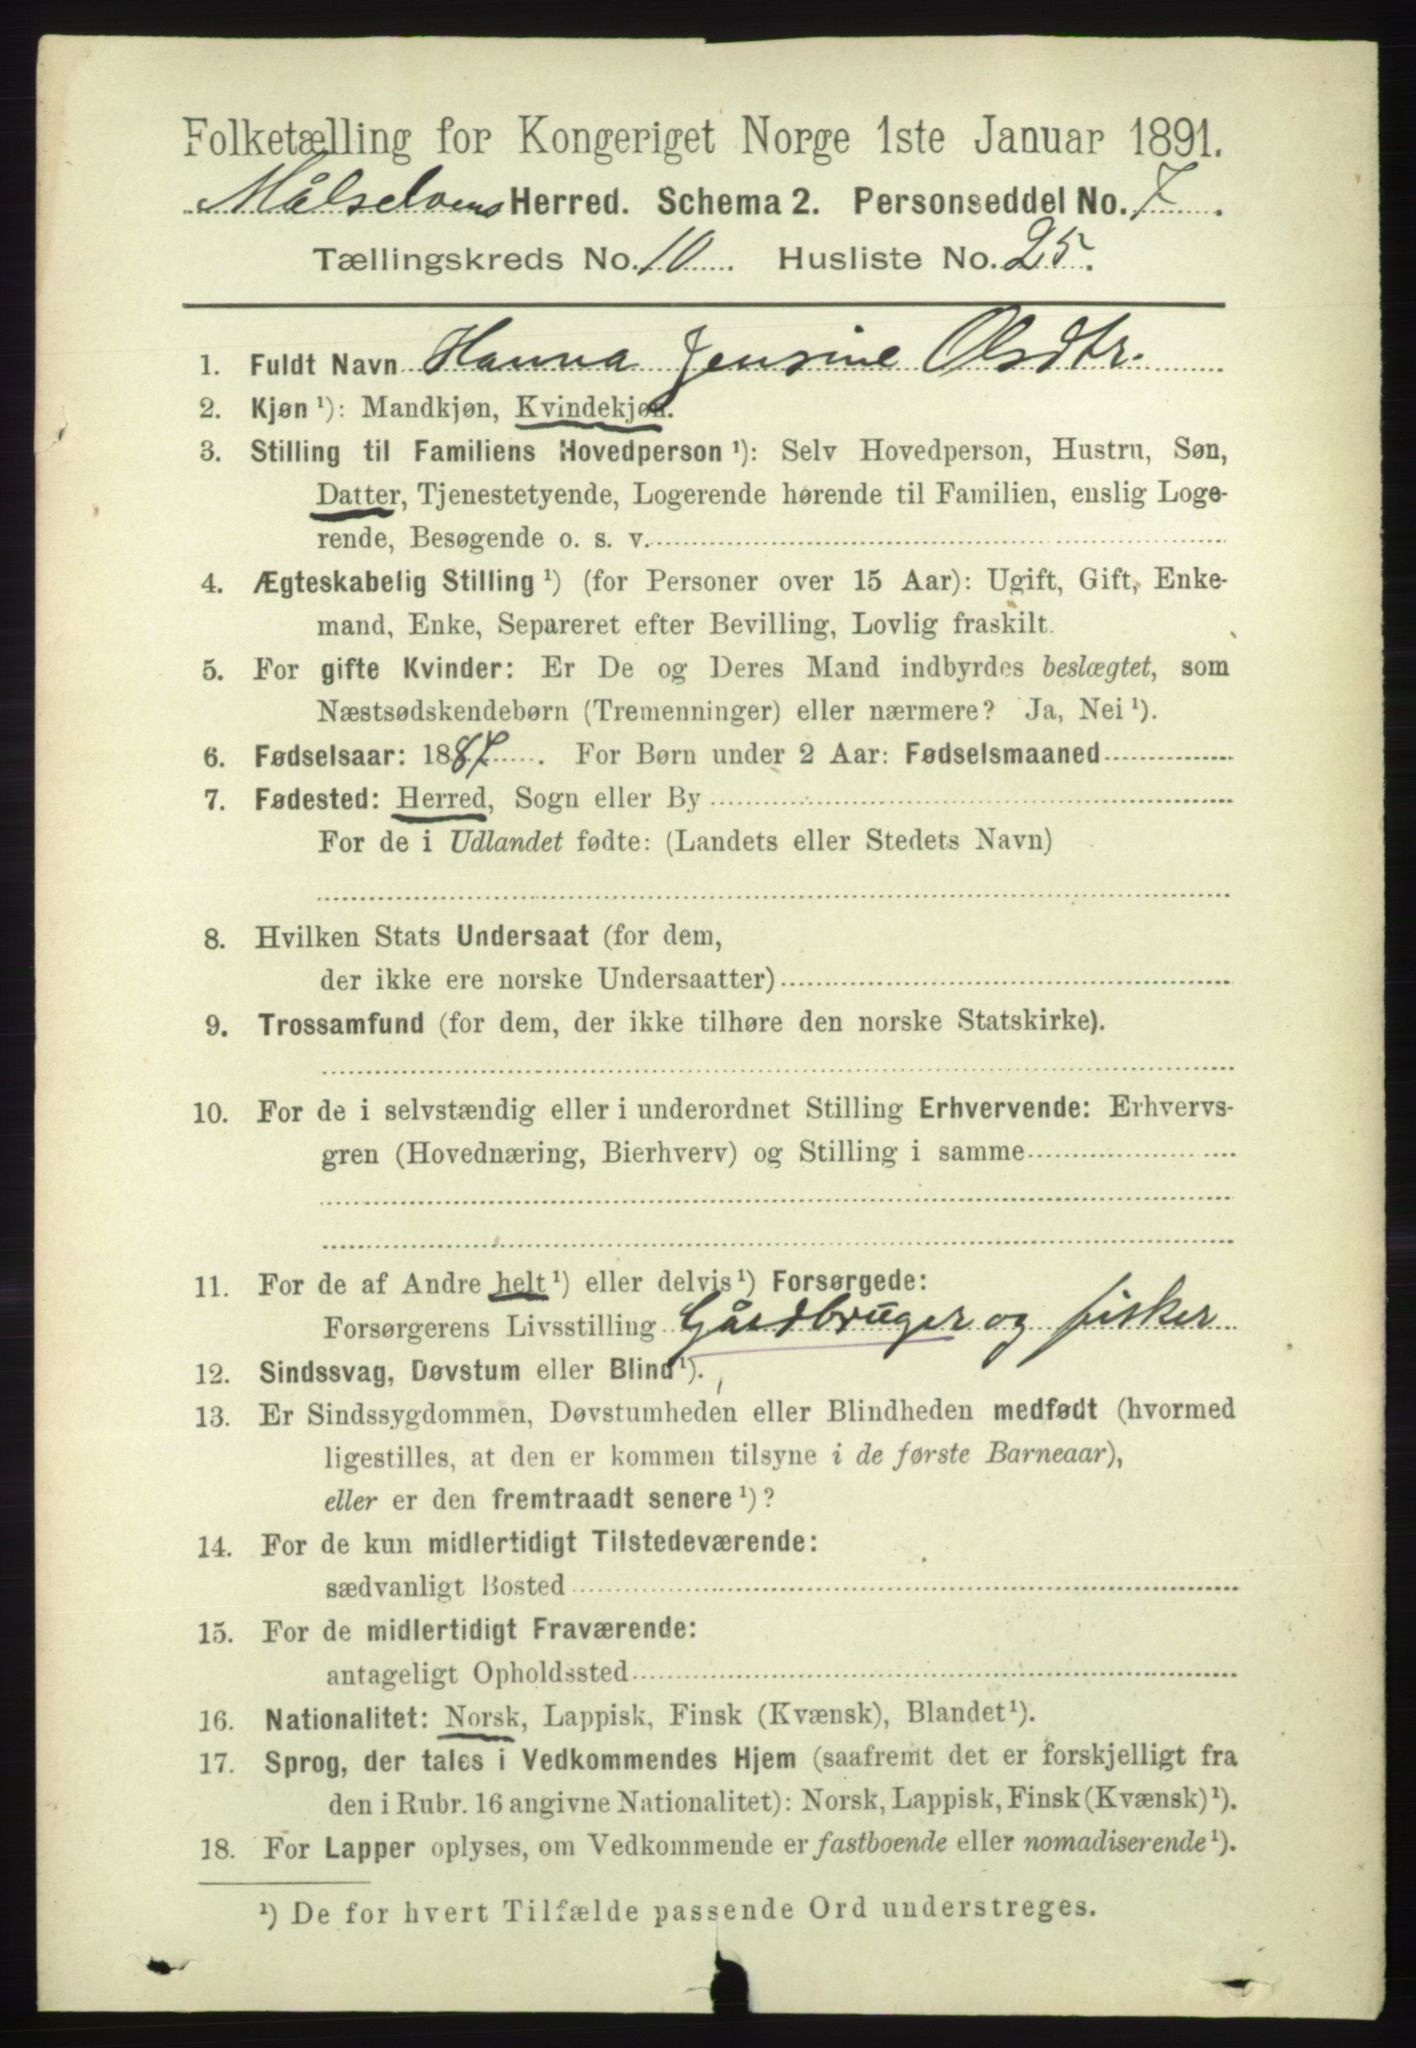 Folketælling for Kongeriget Norge 1ste Januar 1891.
Målselvens Herred. Schema 2. Personseddel No. 7.
Tællingskreds No. 10. Husliste No. 25.
1. Fuldt Navn Hanna Jensine Olsdtr.
2. Kjøn ¹): Mandkjøn, Kvindekjøn.
3. Stilling til Familiens Hovedperson ¹): Selv Hovedperson, Hustru, Søn,
Datter, Tjenestetyende, Logerende hørende til Familien, enslig Loge-
rende, Besøgende o. s. v.
4. Ægteskabelig Stilling ¹) (for Personer over 15 Aar): Ugift, Gift, Enke-
mand, Enke, Separeret efter Bevilling, Lovlig fraskilt.
5. For gifte Kvinder: Er De og Deres Mand indbyrdes beslægtet, som
Næstsødskendebørn (Tremenninger) eller nærmere? Ja, Nei ¹).
6. Fødselsaar: 1887. For Børn under 2 Aar: Fødselsmaaned
7. Fødested: Herred, Sogn eller By
For de i Udlandet fødte: (Landets eller Stedets Navn)
8. Hvilken Stats Undersaat (for dem,
der ikke ere norske Undersaatter)
9. Trossamfund (for dem, der ikke tilhøre den norske Statskirke).
10. For de i selvstændig eller i underordnet Stilling Erhvervende: Erhvervs-
gren (Hovednæring, Bierhverv) og Stilling i samme
11. For de af Andre helt ¹) eller delvis ¹) Forsørgede:
Forsørgerens Livsstilling Gårdbruger og fisker
12. Sindssvag, Døvstum eller Blind ¹).
13. Er Sindssygdommen, Døvstumheden eller Blindheden medfødt (hvormed
ligestilles, at den er kommen tilsyne i de første Barneaar),
eller er den fremtraadt senere ¹)?
14. For de kun midlertidigt Tilstedeværende:
sædvanligt Bosted
15. For de midlertidigt Fraværende:
antageligt Opholdssted
16. Nationalitet: Norsk, Lappisk, Finsk (Kvænsk), Blandet ¹).
17. Sprog, der tales i Vedkommendes Hjem (saafremt det er forskjelligt fra
den i Rubr. 16 angivne Nationalitet): Norsk, Lappisk, Finsk (Kvænsk) ¹).
18. For Lapper oplyses, om Vedkommende er fastboende eller nomadiserende ¹).
¹) De for hvert Tilfælde passende Ord understreges.